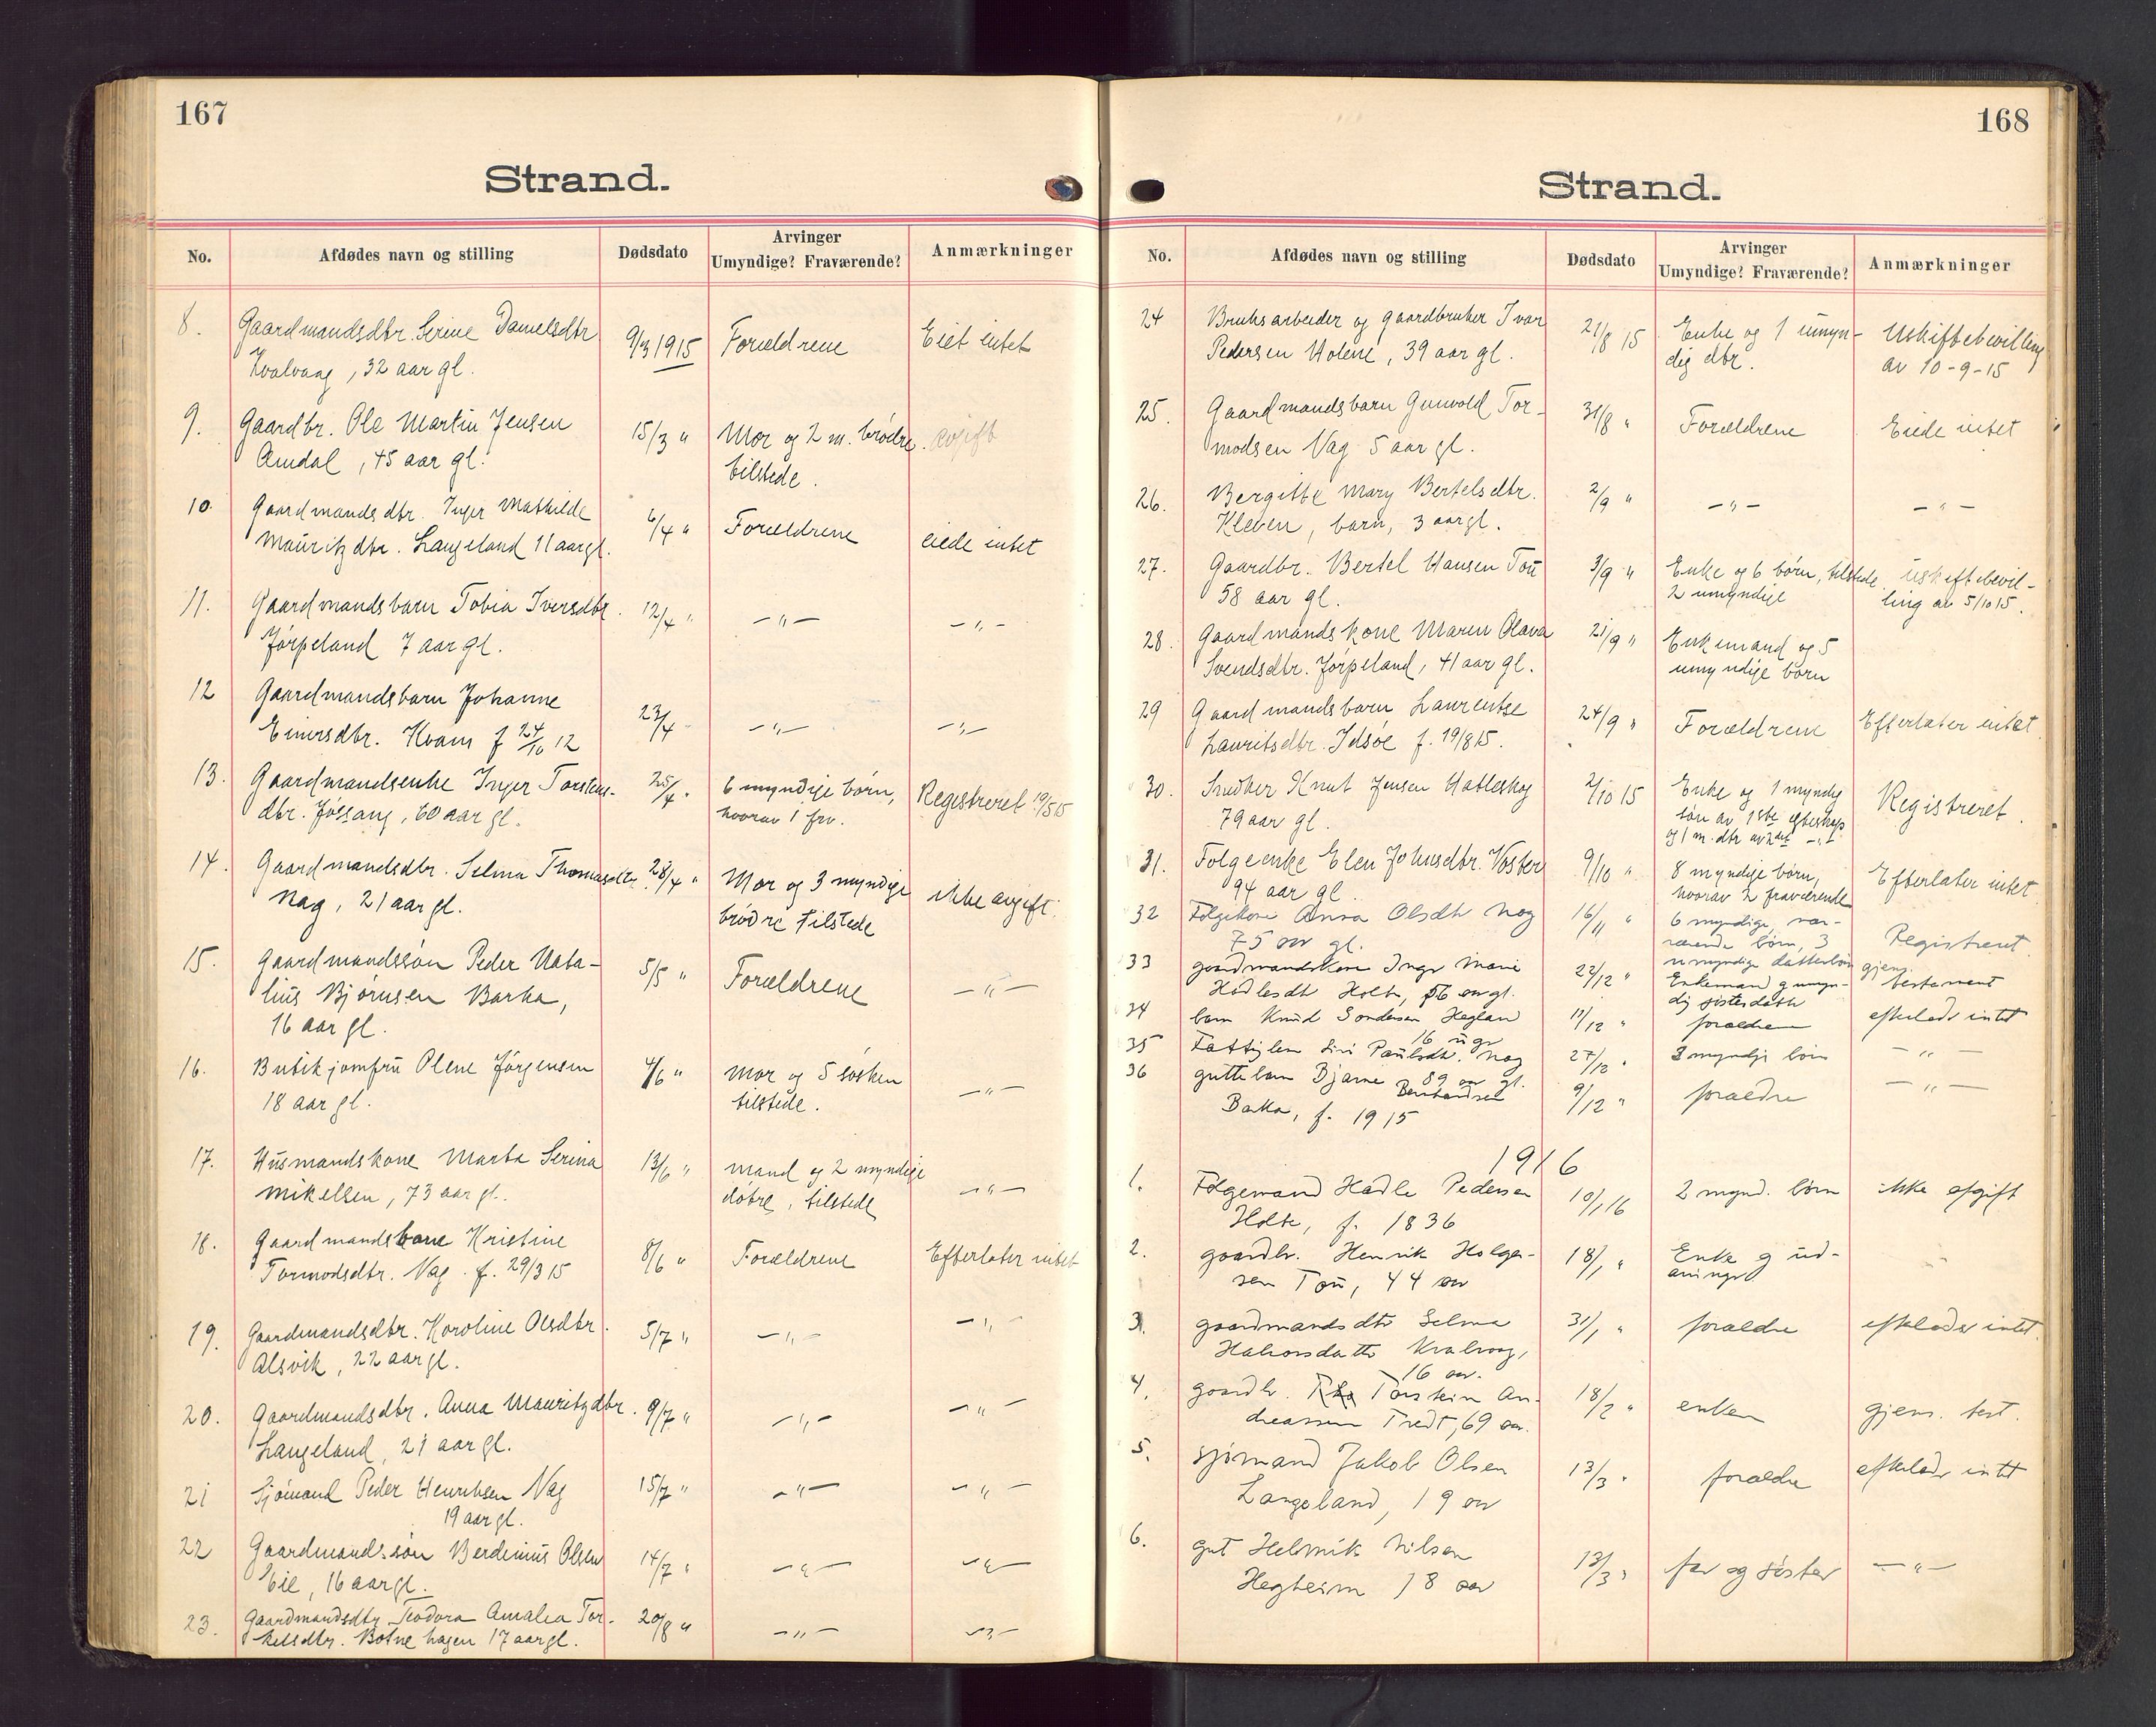 167
Strand.
No. Afdødes navn og stilling Dødsdato Arvinger Umyndige? Fraværende? Anmærkninger
8. Gaardmandsdtr. Serine Danielsdtr 9/3 1915 Forældrene Eiet intet
Kvalvaag, 32 aar gl.
9. Gaardbr. Ole Martin Jensen 15/3 " Mor og 2 m. brødre avgift
Amdal, 45 aar gl. tilstede.
10. Gaardmandsdtr. Inger Mathilde 6/4 " Forældrene eiede intet
Mauritzdtr. Langeland 11 aar gl.
11. Gaardmandsbarn Tobia Iversdtr. 12/4 " -"- -"-
Jørpeland 7 aar gl.
12 Gaardmandsbarn Johanne 23/4 -"- -"-
Einersdtr. Kvam f 24/10 12
13. Gaardmandsenke Inger Torstens- 25/4 " 6 myndige børn, Registreret 19/5 15
dtr. Jøssang, 60 aar gl. hvorav 1 frv.
14. Gaardmandsdtr. Selma Thomasdtr. 28/4 " Mor og 3 myndige ikke avgift.
Nag, 21 aar gl. brødre tilstede
15. Gaardmandssøn Peder Nata- 5/5 " Forældrene -"-
lius Bjørnsen Barka,
16 aar gl.
16. Butikjomfru Olene Jørgensen 4/6 " Mor og 5 søsken -"-
18 aar gl. tilstede.
17. Husmandskone Marta Serina 13/6 " mand og 2 myndige -"-
Mikelsen, 73 aar gl. døtre, tilstede
18. Gaardmandsbarn Kristine 8/6 " Forældrene Efterlater intet
Tormodsdtr. Nag. f. 29/3 15
19. Gaardmandsdtr. Karoline Olsdtr. 5/7 " -"- -"-
Alsvik, 22 aar gl.
20. Gaardmandsdtr. Anna Mauritzdtr. 9/7 " -"- -"-
Langeland, 21 aar gl.
21 Sjømand Peder Henriksen Nag 15/7 " -"- -"-
19 aar gl.
22 Gaardmandssøn Berdinius Olsen 14/7 " -"- -"-
Eie, 16 aar gl.
23. Gaardmandsdtr. Teodora Amalia Tor- 20/8 " -"- -"-
kelsdtr. Botnehagen 17 aar gl.
168
Strand.
No. Afdødes navn og stilling Dødsdato Arvinger Umyndige? Fraværende? Anmærkninger
24 Bruksarbeider og gaardbruker Ivar 21/8 15 Enke og 1 umyn- Uskiftebevilling
Pedersen Holene, 39 aar gl. dig dtr. av 10-9-15
25. Gaardmandsbarn Gunvald Tor- 31/8 " Forældrene Eiede intet
modsen Nag 5 aar gl.
26. Bergitte Mary Bertelsdtr. 2/9 " -"- -"-
Kleven, barn, 3 aar gl.
27. Gaardbr. Bertel Hansen Tou 3/9 " Enke og 6 børn, tilstede uskiftebevil-
58 aar gl. 2 umyndige ling av 5/10 15.
28. Gaardmandskone Maren Olava 21/9 " Enkemand og 5
Svendsdtr. Jørpeland, 41 aar gl. umyndige børn
29 Gaardmandsbarn Laurentse 24/9 " Forældrene Efterlater intet.
Lauritsdtr. Idsøe f. 19/8 15.
30. Snedker Knut Jensen Hatleskog 2/10 15 Enke og 1 myndig Registreret.
79 aar gl. søn av 1ste egteskap
og 1 m. dtr av 2det -"-
31. Følgeenke Elen Johnsdtr. Voster 9/10 " 8 myndige børn, Efterlater intet
94 aar gl. hvorav 2 fraværende
32 Følgekone Anna Olsdtr Nag 16/11 " 6 myndige, nær- Registreret
75 aar gl. værende børn, 3
umyndige datterbørn
33 gaardmandskone Inger Marie 22/12 " Enkemand og umyn- gjens. testament
Hadlesdtr Holte, 56 aar gl. dig søsterdatter
34 barn Knud Sondresen Hegland 11/12 " forældrene efterlader intet
16 uger
35 Fattiglem Siri Paulsdtr. Nag 27/12 " 3 myndige børn -"-
89 aar gl.
36 guttebarn Bjarne Berntsen 9/12 " forældre -"-
Barka, f. 1915
1916
1. Følgemand Hadle Pedersen 10/1 16 2 mynd. børn ikke afgift
Holte, f. 1836
2. gaardbr. Henrik Holger- 18/1 " Enke og ud-
sen Tou, 44 aar arvinger
3. gaardmandsdtr Selma 31/1 " forældre efterlader intet.
Halvorsdatter Kvalvaag,
16 aar.
4. gaardbr. Torstein An- 18/2 " enken gjens. test.
dreassen Tredt, 69 aar.
5. sjømand Jakob Olsen 13/3 " forældre efterlader intet
Langeland, 19 aar
6. gut Helmik Nilsen 13/3 " far og søster -"-
Hegheim 18 aar